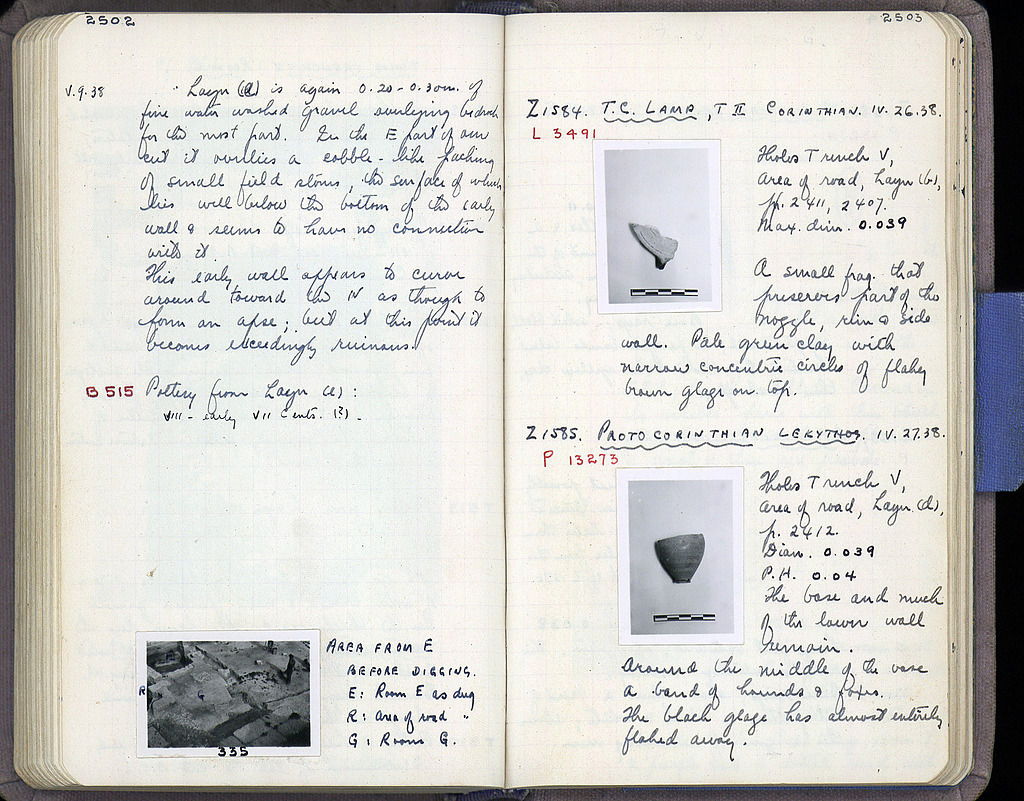 2502
V.9.38
Layer (e) is again 0.20-0.30m. of
fine water washed gravel overlying bedrock
for the most part. In the E part of our
cut it overlies a cobble-like packing
of small field stones, the surface of which
lies well below the bottom of the early
wall & seems to have no connection
with it.
This early wall appears to curve
around toward the N as though to
form an apse; but at this point it
becomes exceedingly ruinous.
B 515 Pottery from Layer (e):
VIII - early VII Cents. (?).
R
G
335
AREA FROM E
BEFORE DIGGING.
E: Room E as dug
R: area of road "
G: Room G.
2503
Z1584. T.C. LAMP, T II CORINTHIAN. IV.26.38.
L 3491
Tholos Trench V,
area of road, Layer (b),
p. 2411, 2407.
Max. dim. 0.039
A small frag. that
preserves part of the
nozzle, rim & side
wall. Pale green clay with
narrow concentric circles of flaky
brown glaze on top.
Z1585. PROTOCORINTHIAN LEKYTHOS. IV.27.38.
P 13273
Tholos Trench V,
area of road, Layer (d),
p. 2412.
Diam. 0.039
P.H. 0.04
The base and much
of the lower wall
remain.
Around the middle of the vase
a band of hounds & foxes.
The black glaze has almost entirely
flaked away.